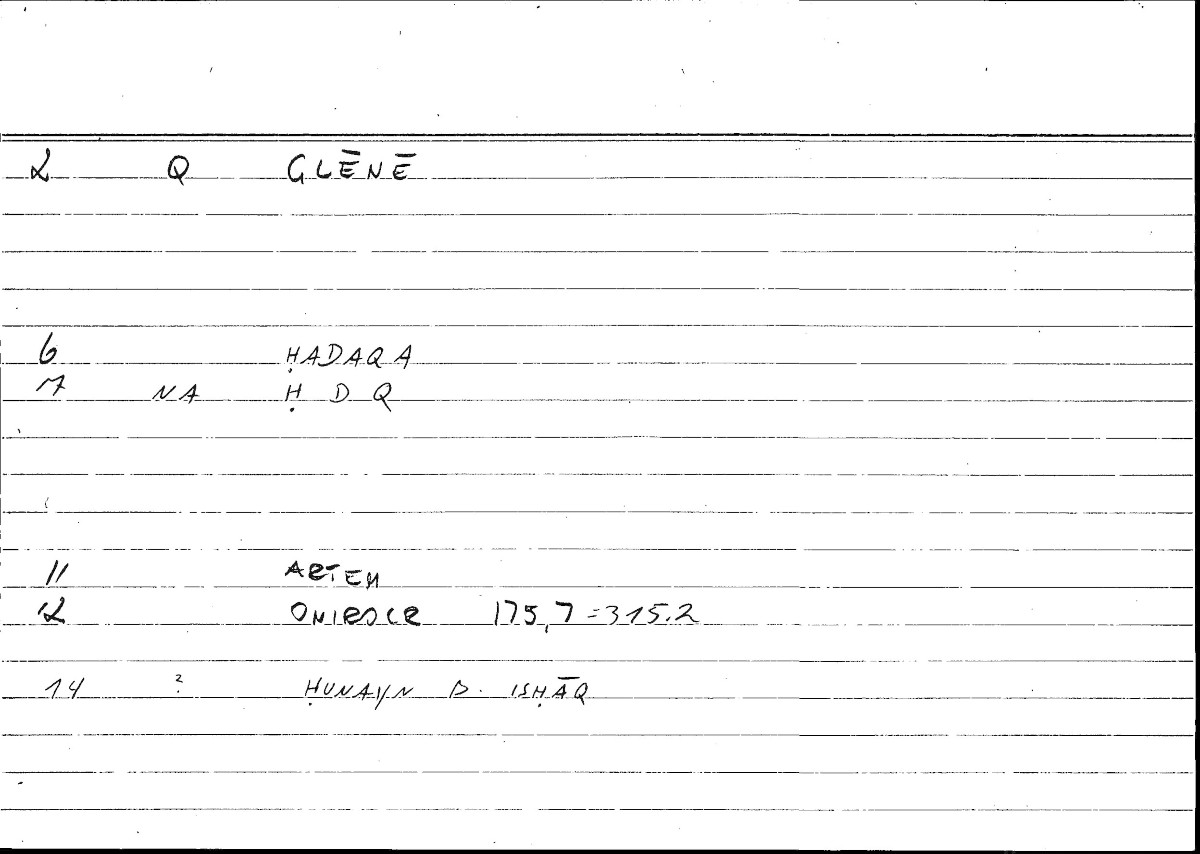 2 Q GLĒNĒ
6 ḤADAQA
7 NA Ḥ D Q
11 ARTEM
12 ONIROCR 175,7=315.2
14 ? ḤUNAYN B. ISḤĀQ